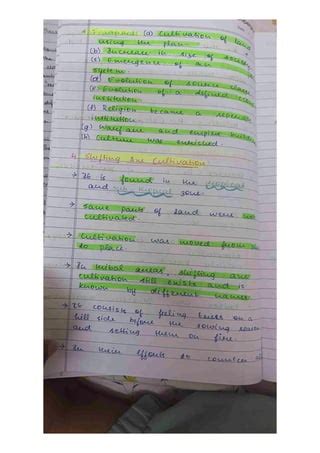 (a) Cultivation of land
using the plow
(b) Increase in size of
(c) Emergence of an
system
(d) Evolution of
(e) Evolution of a defined
institution
(f) Religion became a separate
institution
(g) Warfare and empire building
(h) Culture was enriched
4. Shifting Cultivation
→ It is found in the
and zone
→ Same parts of land were not
cultivated
→ Cultivation was moved from
to place
→ In tribal areas, shifting
cultivation still exists and is
known by different names
→ It consists of felling trees on a
hill side before the sowing season
and setting them on fire.
→ In their efforts to counter